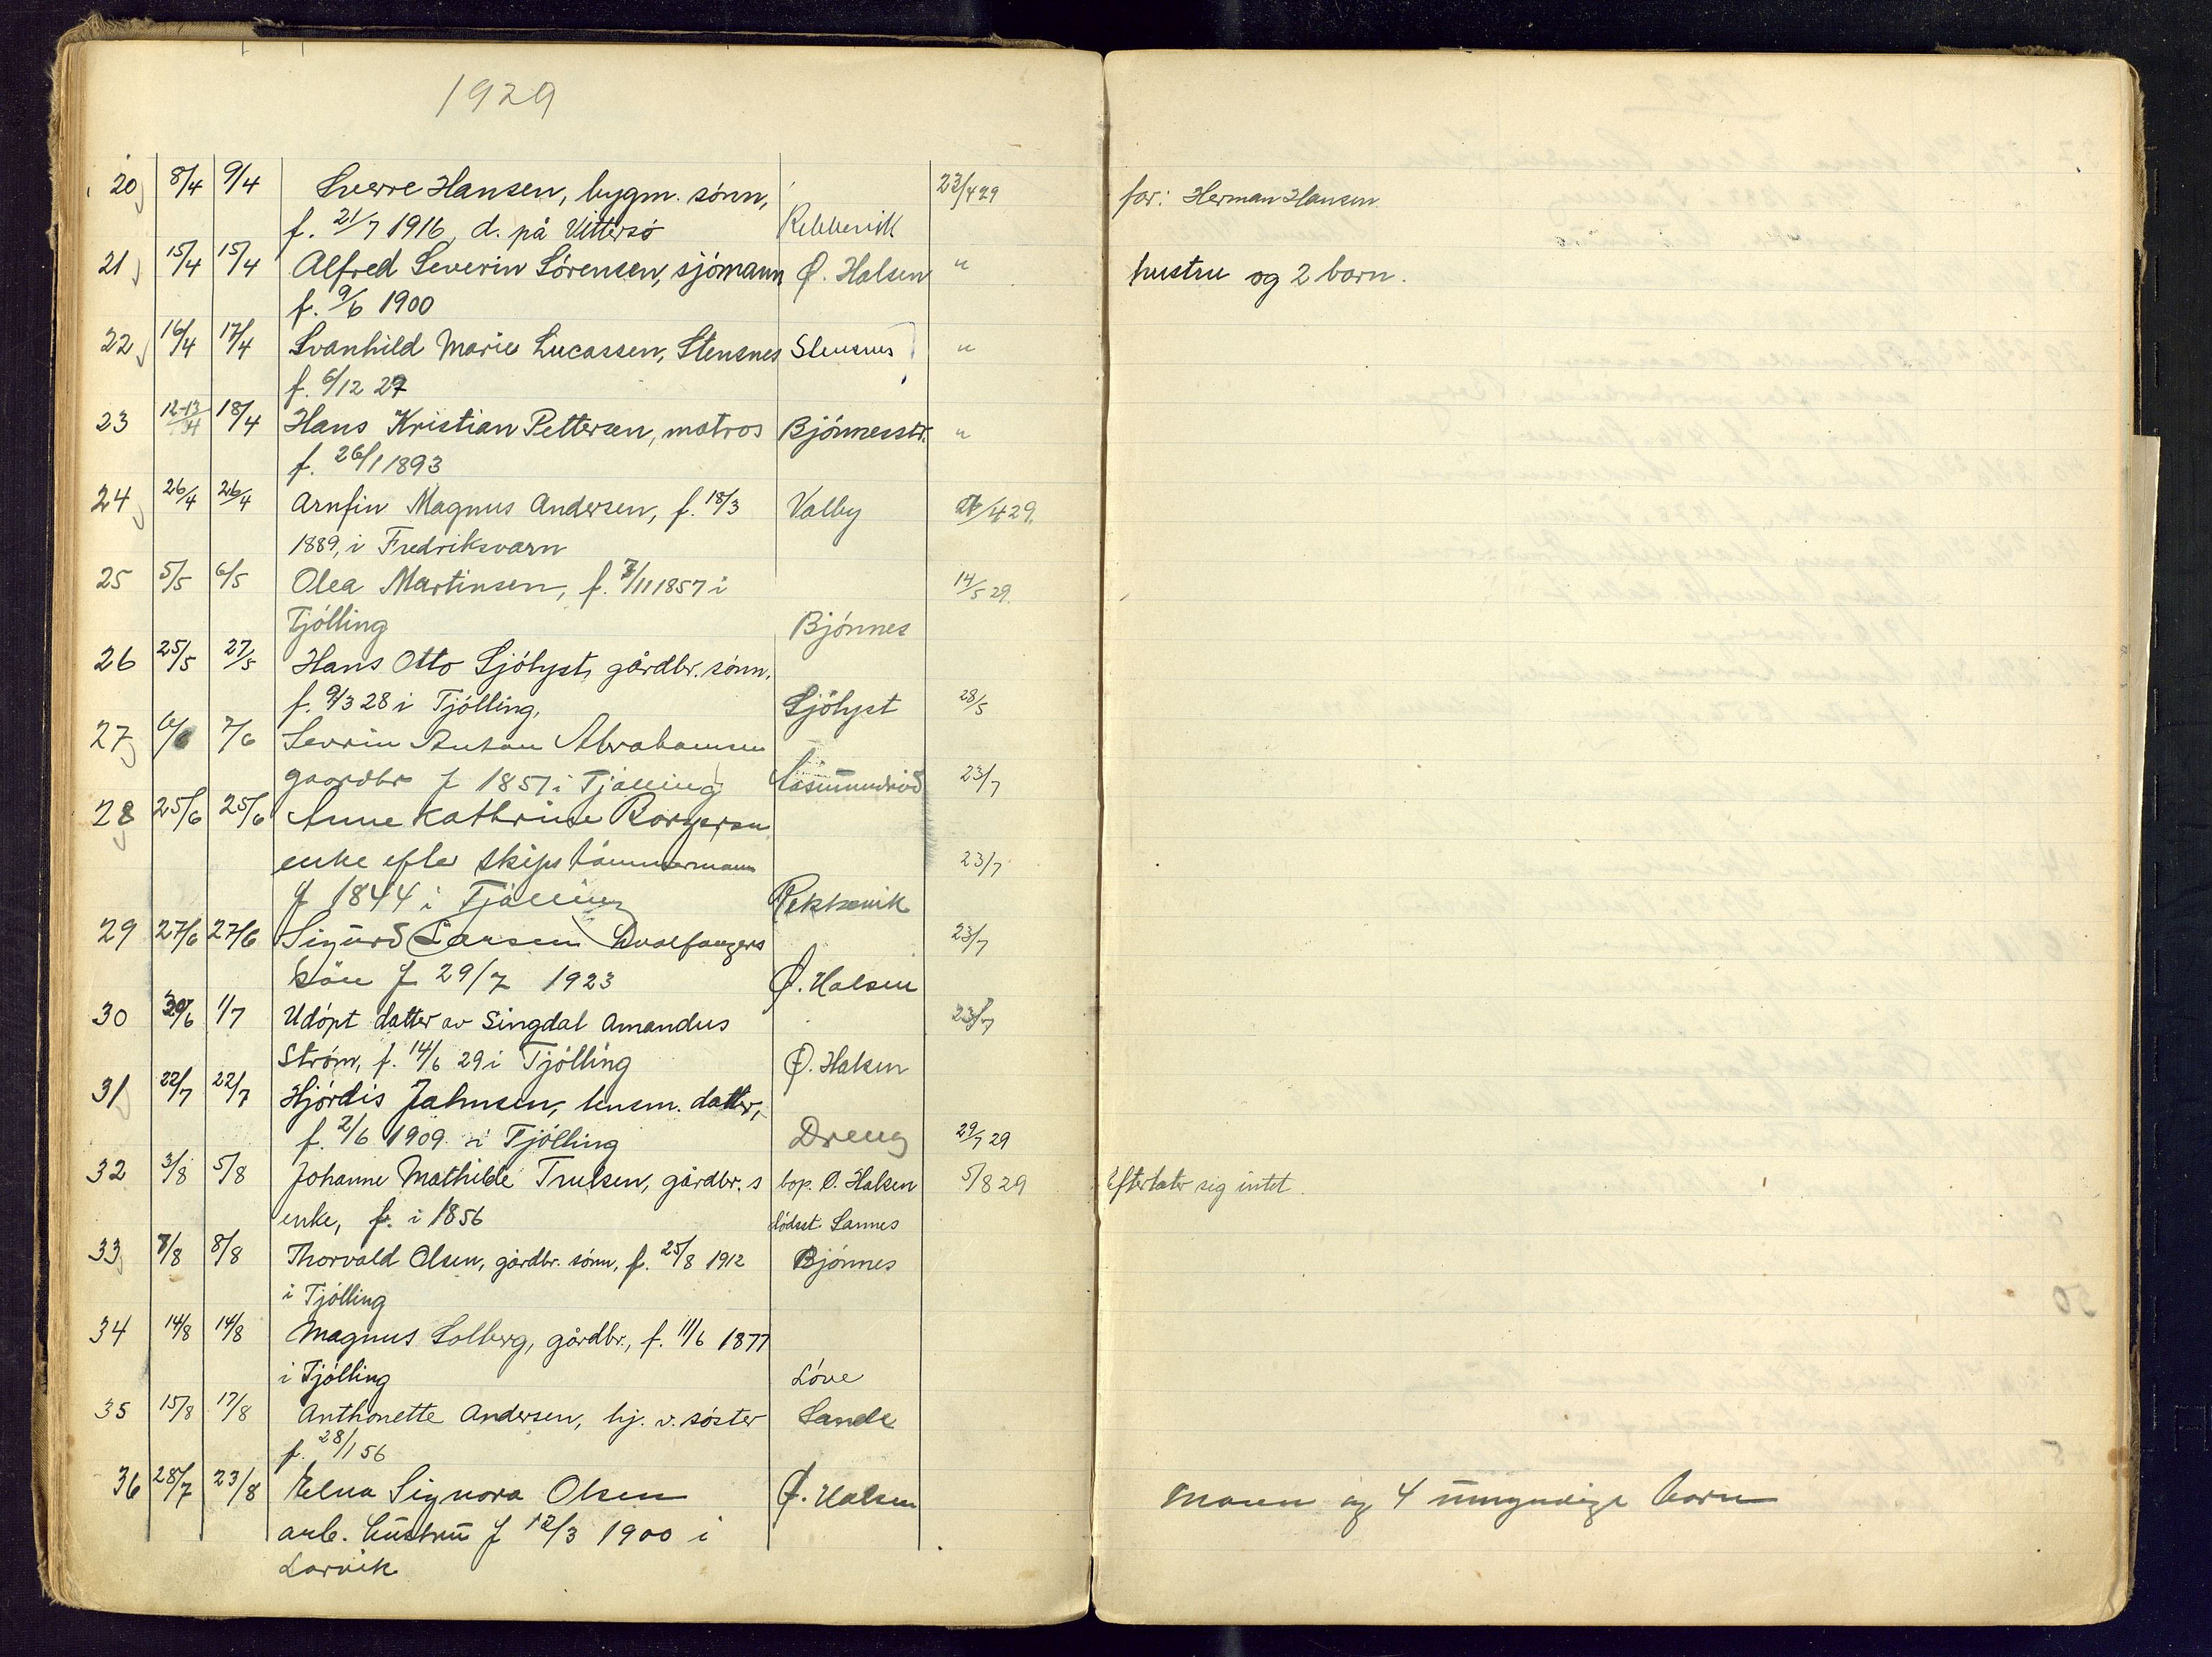 1929
20 8/4 9/4 Sverre Hansen, bygm. sönn, 23/4 29 far: Herman Hansen
f. 21/7 1916, d. på Vittersö Rekkevik
21 15/4 15/4 Alfred Severin Sörensen, sjömann Ø. Halsen " hustru og 2 barn.
f. 9/6 1900
22 16/4 17/4 Svanhild Marie Lucassen, Stensnes Stensnes "
f. 6/12 27
23 12-13/4 18/4 Hans Kristian Pettersen, matros Bjönnesstr. "
f. 26/1 1893
24 26/4 26/4 Arnfin Magnus Andersen, f. 18/3 Valby /4 29.
1889, i Fredriksvarn
25 5/5 6/5 Olea Martinsen, f. 7/11 1857 i 14/5 29.
Tjölling Bjönnes
26 25/5 27/5 Hans Otto Sjölyst, gårdbr. sönn.
f. 9/3 28 i Tjölling, Sjölyst 28/5
27 6/6 7/6 Sevrin Anton Abrahamsen
gaardbr f 1851 i Tjölling 23/7
28 25/6 25/6 Anne Kathrine Borgersen
enke efter skipstömmermann 23/7
f 1844 i Tjölling Rekkevik
29 27/6 27/6 Sigurd Larsen Hvalfangers 23/7
sön f 29/7 1923 Ø. Halsen
30 30/6 1/7 Udöpt datter av Singdal Amandus 23/7
Ström, f. 14/6 29 i Tjölling Ø. Halsen
31 22/7 22/7 Hjördis Jahnsen, lensm. datter,
f. 2/6 1909 i Tjölling Dreng 29/7 29
32 3/8 5/8 Johanne Mathilde Trulsen, gårdbr.s bop. Ö. Halsen 5/8 29 Efterlater sig intet.
enke, f. i 1856 dödsst. Sannes
33 7/8 8/8 Thorvald Olsen, gårdbr. sönn, f. 25/8 1912 Bjönnes
i Tjölling
34 14/8 14/8 Magnus Solberg, gårdbr., f. 11/6 1877
i Tjölling Löve
35 15/8 17/8 Anthonette Andersen, hj. v. söster Sande
f. 28/1 56
36 28/7 23/8 Elna Signora Olsen Ø. Halsen Mann og 4 umyndige barn
arb. hustru f 12/3 1900 i
Larvik